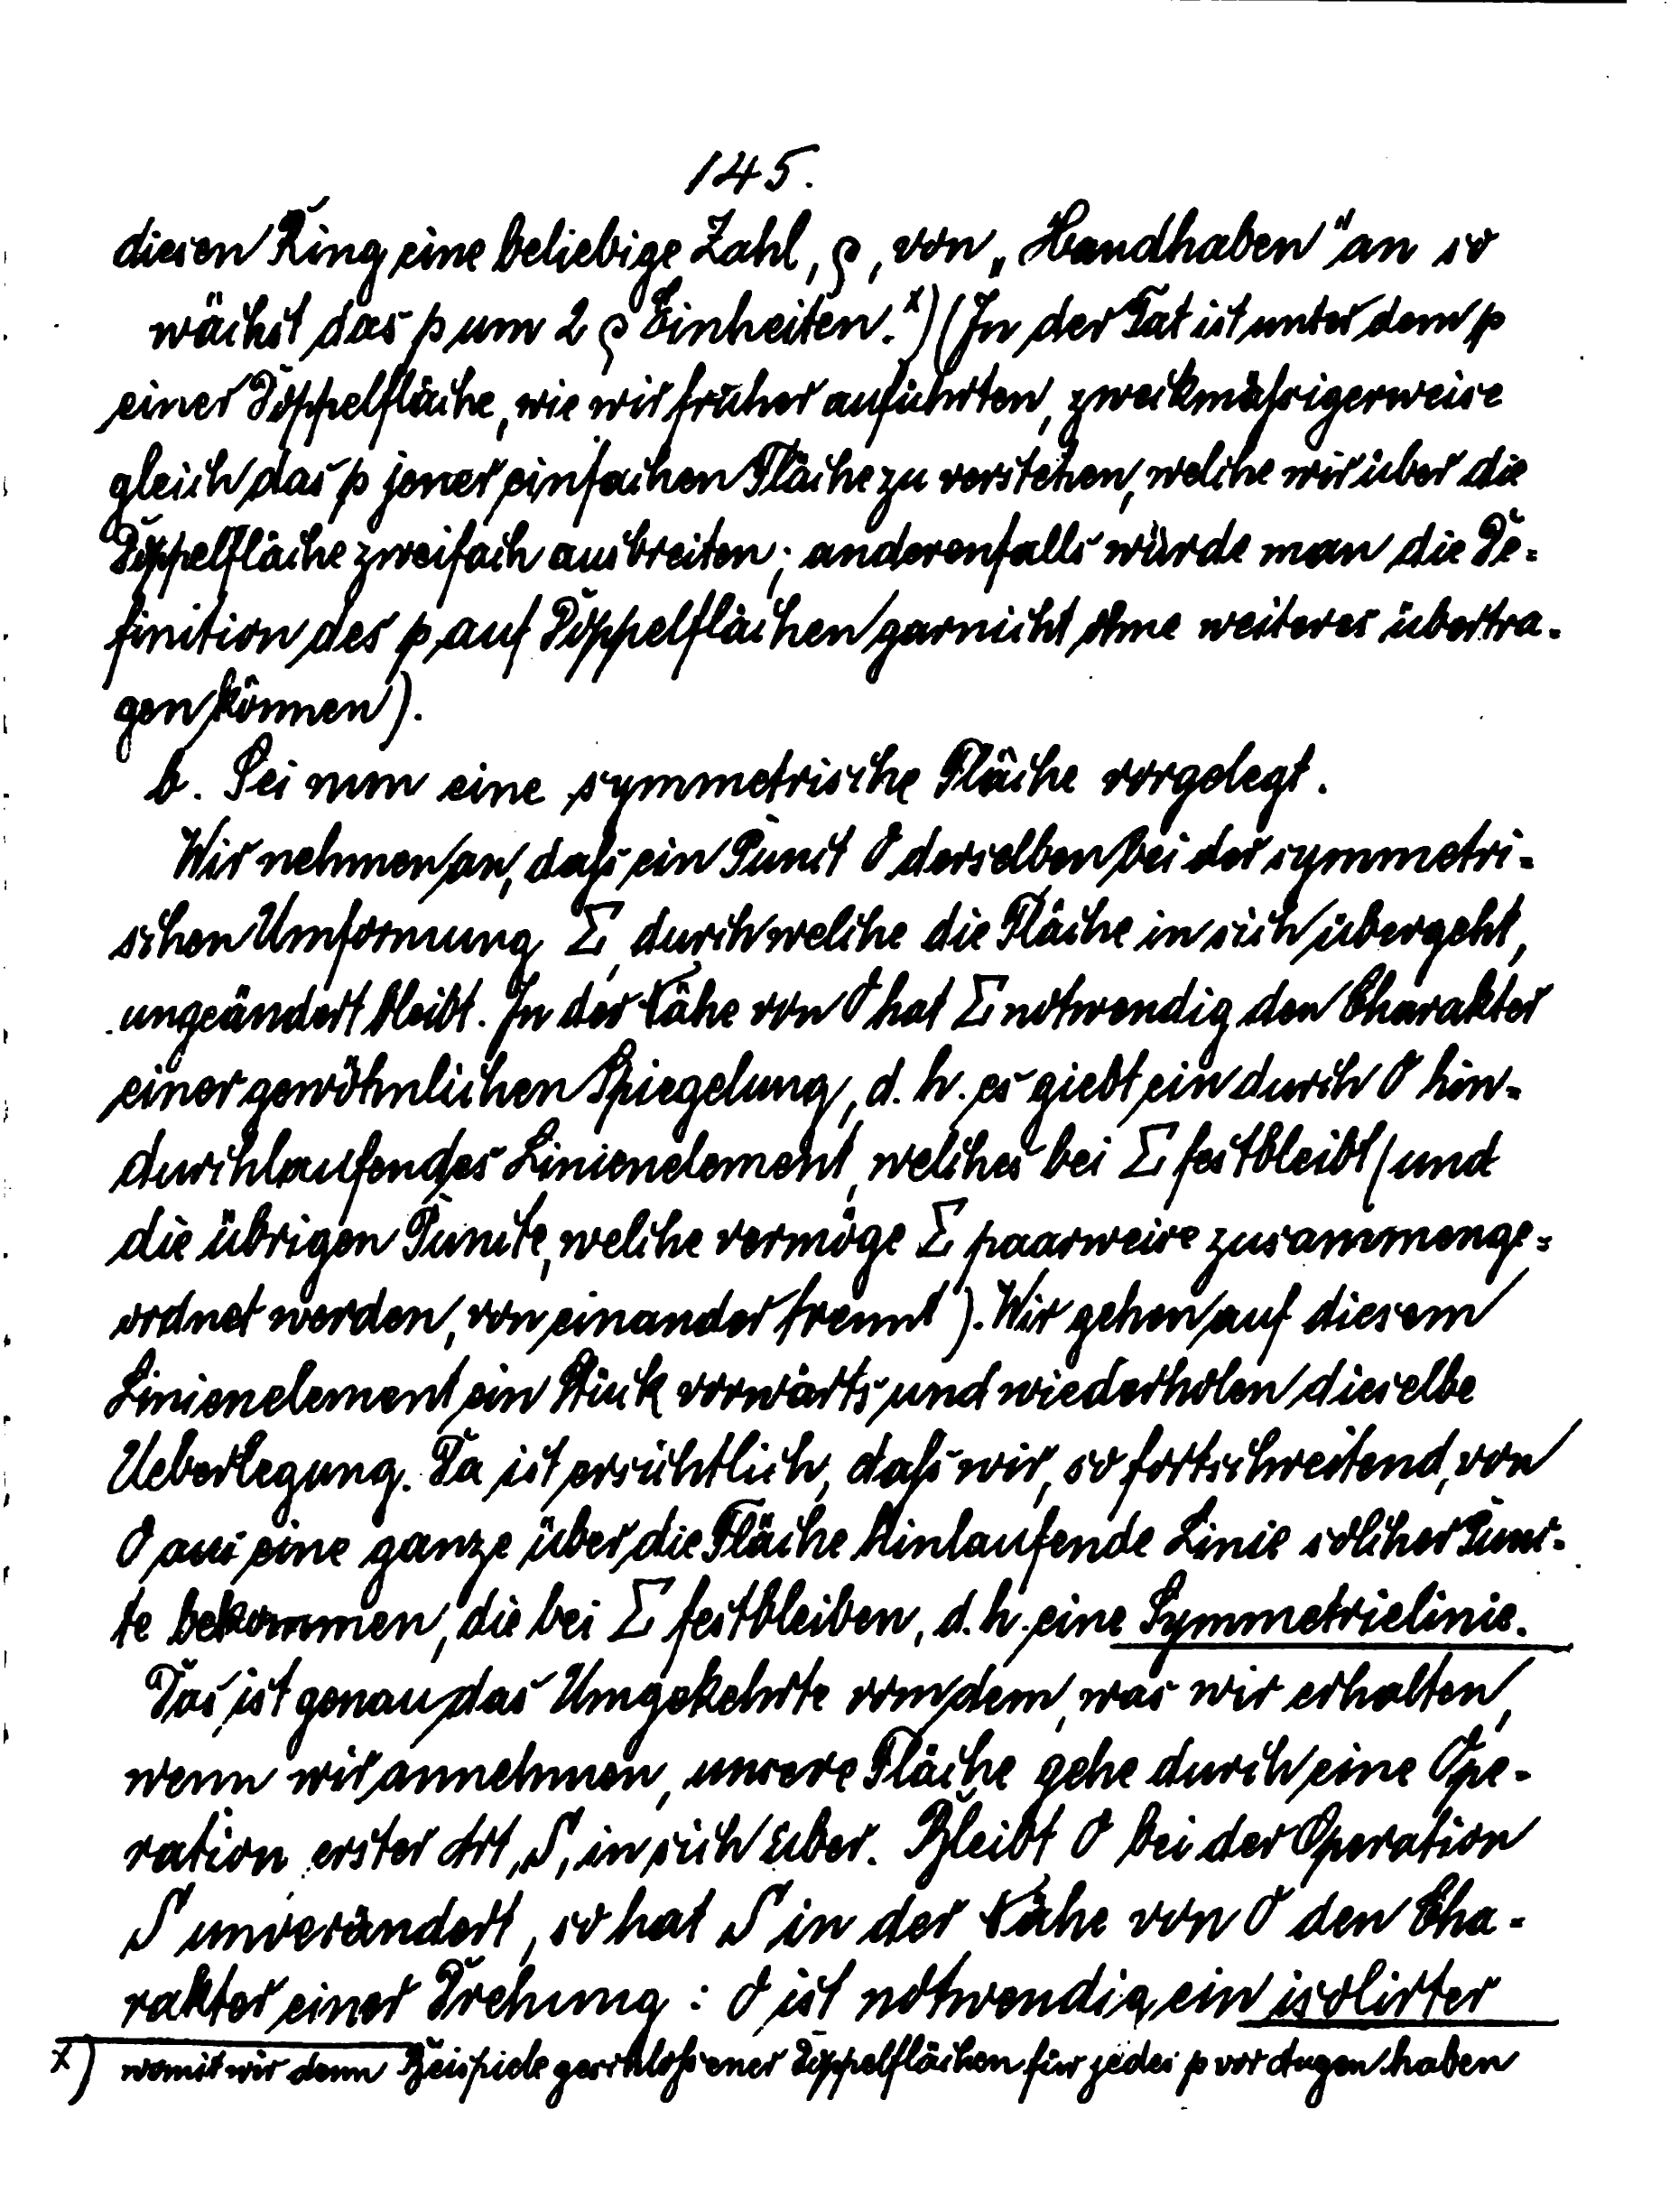 145.
diesen Ring eine beliebige Zahl, ϱ, von „Handhaben" an so
wächst das p um 2 ϱ Einheiten.ˣ) (In der Tat ist unter dem p
einer Doppelfläche, wie wir früher anführten, zweckmäßigerweise
gleich das p jener einfachen Fläche zu verstehen, welche wir über die
Doppelfläche zweifach ausbreiten; anderenfalls würde man die De-
finition des p auf Doppelflächen garnicht ohne weiteres übertra-
gen können).
b. Sei nun eine symmetrische Fläche vorgelegt.
Wir nehmen an, daß ein Punct O derselben bei der symmetri-
schen Umformung Σ, durch welche die Fläche in sich übergeht,
ungeändert bleibt. In der Nähe von O hat Σ notwendig den Charakter
einer gewöhnlichen Spiegelung, d. h. es giebt ein durch O hin-
durchlaufendes Linienelement, welches bei Σ festbleibt (und
die übrigen Puncte, welche vermöge Σ paarweise zusammenge-
ordnet werden, von einander trennt). Wir gehen auf diesem
Linienelement ein Stück vorwärts und wiederholen dieselbe
Ueberlegung. Da ist ersichtlich, daß wir, so fortschreitend, von
O aus eine ganze über die Fläche hinlaufende Linie solcher Punc-
te bekommen, die bei Σ festbleiben, d. h. eine Symmetrielinie.
Das ist genau das Umgekehrte von dem, was wir erhalten,
wenn wir annehmen, unsere Fläche gehe durch eine Ope-
ration erster Art, S, in sich über. Bleibt O bei der Operation
S unverändert, so hat S in der Nähe von O den Cha-
rakter einer Drehung: O ist notwendig ein isolirter
x) womit wir denn Beispiele geschloßener Doppelflächen für jedes p vor Augen haben